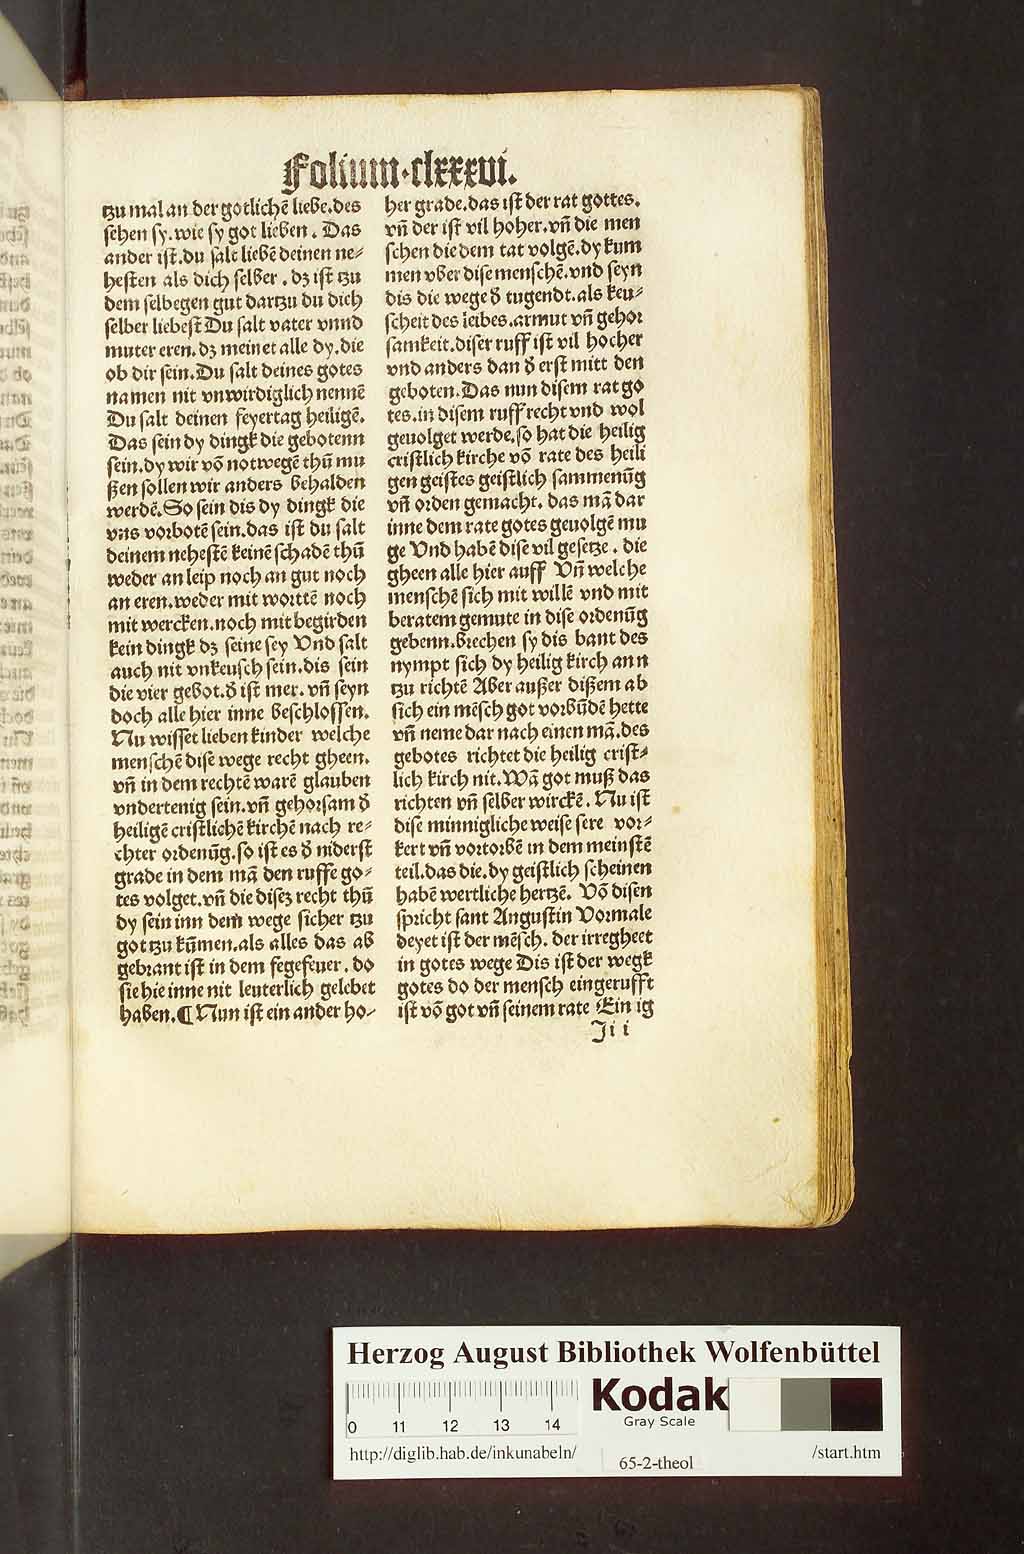 Folium·clxxxvi.
tzu mal an der gotlichē liebe.des
sehen sy.wie sy got lieben. Das
ander ist.du salt liebē deinen ne⸗
hesten als dich selber. dz ist tzu
dem selbegen gut dartzu du dich
selber liebest Du salt vater vnnd
muter eren.dz meinet alle dy.die
ob dir sein.Du salt deines gotes
namen nit vnwirdiglich nennē
Du salt deinen feyertag heiligē.
Das sein dy dingk die gebotenn
sein.dy wir vō notwegē thū mu
ßen sollen wir anders behalden
werdē.So sein dis dy dingk die
vns vorbotē sein.das ist du salt
deinem nehestē keinē schadē thū
weder an leip noch an gut noch
an eren.weder mit worttē noch
mit wercken.noch mit begirden
kein dingk dz seine sey Vnd salt
auch nit vnkeusch sein.dis sein
die vier gebot.d̕ ist mer. vn̄ seyn
doch alle hier inne beschlossen.
Nu wisset lieben kinder welche
menschē dise wege recht gheen.
vn̄ in dem rechtē warē glauben
vndertenig sein.vn̄ gehorsam d̕
heiligē cristlichē kirchē nach re⸗
chter ordenūg.so ist es d̕ niderst
grade in dem mā den ruffe go⸗
tes volget.vn̄ die disez recht thū
dy sein inn dem wege sicher tzu
got tzu kūmen.als alles das ab
gebrant ist in dem fegefeuer. do
sie hie inne nit leuterlich gelebet
haben.¶ Nun ist ein ander ho⸗
her grade.das ist der rat gottes.
vn̄ der ist vil hoher.vn̄ die men
schen die dem tat volgē.dy kum
men vber dise menschē.vnd seyn
dis die wege d̕ tugendt.als keu⸗
scheit des leibes.armut vn̄ gehor
samkeit.diser ruff ist vil hocher
vnd anders dan d̕ erst mitt den
geboten.Das nun disem rat go
tes.in disem ruff recht vnd wol
geuolget werde.so hat die heilig
cristlich kirche vō rate des heili
gen geistes geistlich sammenūg
vn̄ orden gemacht. das mā dar
inne dem rate gotes geuolgē mu
ge Vnd habē dise vil gesetze. die
gheen alle hier auff Vn̄ welche
menschē sich mit willē vnd mit
beratem gemute in dise ordenūg
gebenn.brechen sy dis bant des
nympt sich dy heilig kirch an n
tzu richtē Aber außer dißem ab
sich ein mēsch got vorbūdē hette
vn̄ neme dar nach einen mā.des
gebotes richtet die heilig crist⸗
lich kirch nit.Wā got muß das
richten vn̄ selber wirckē. Nu ist
dise minnigliche weise sere vor⸗
kert vn̄ vortorbē in dem meinstē
teil.das die.dy geistlich scheinen
habē wertliche hertzē. Vō disen
spricht sant Augustin Vormale
deyet ist der mēsch. der irregheet
in gotes wege Dis ist der wegk
gotes do der mensch eingerufft
ist vō got vn̄ seinem rate Ein ig
Ii i
Herzog August Bibliothek Wolfenbüttel
0 11 12 13 14
Kodak
Gray Scale
http://diglib.hab.de/inkunabeln/
65-2-theol
/start.htm